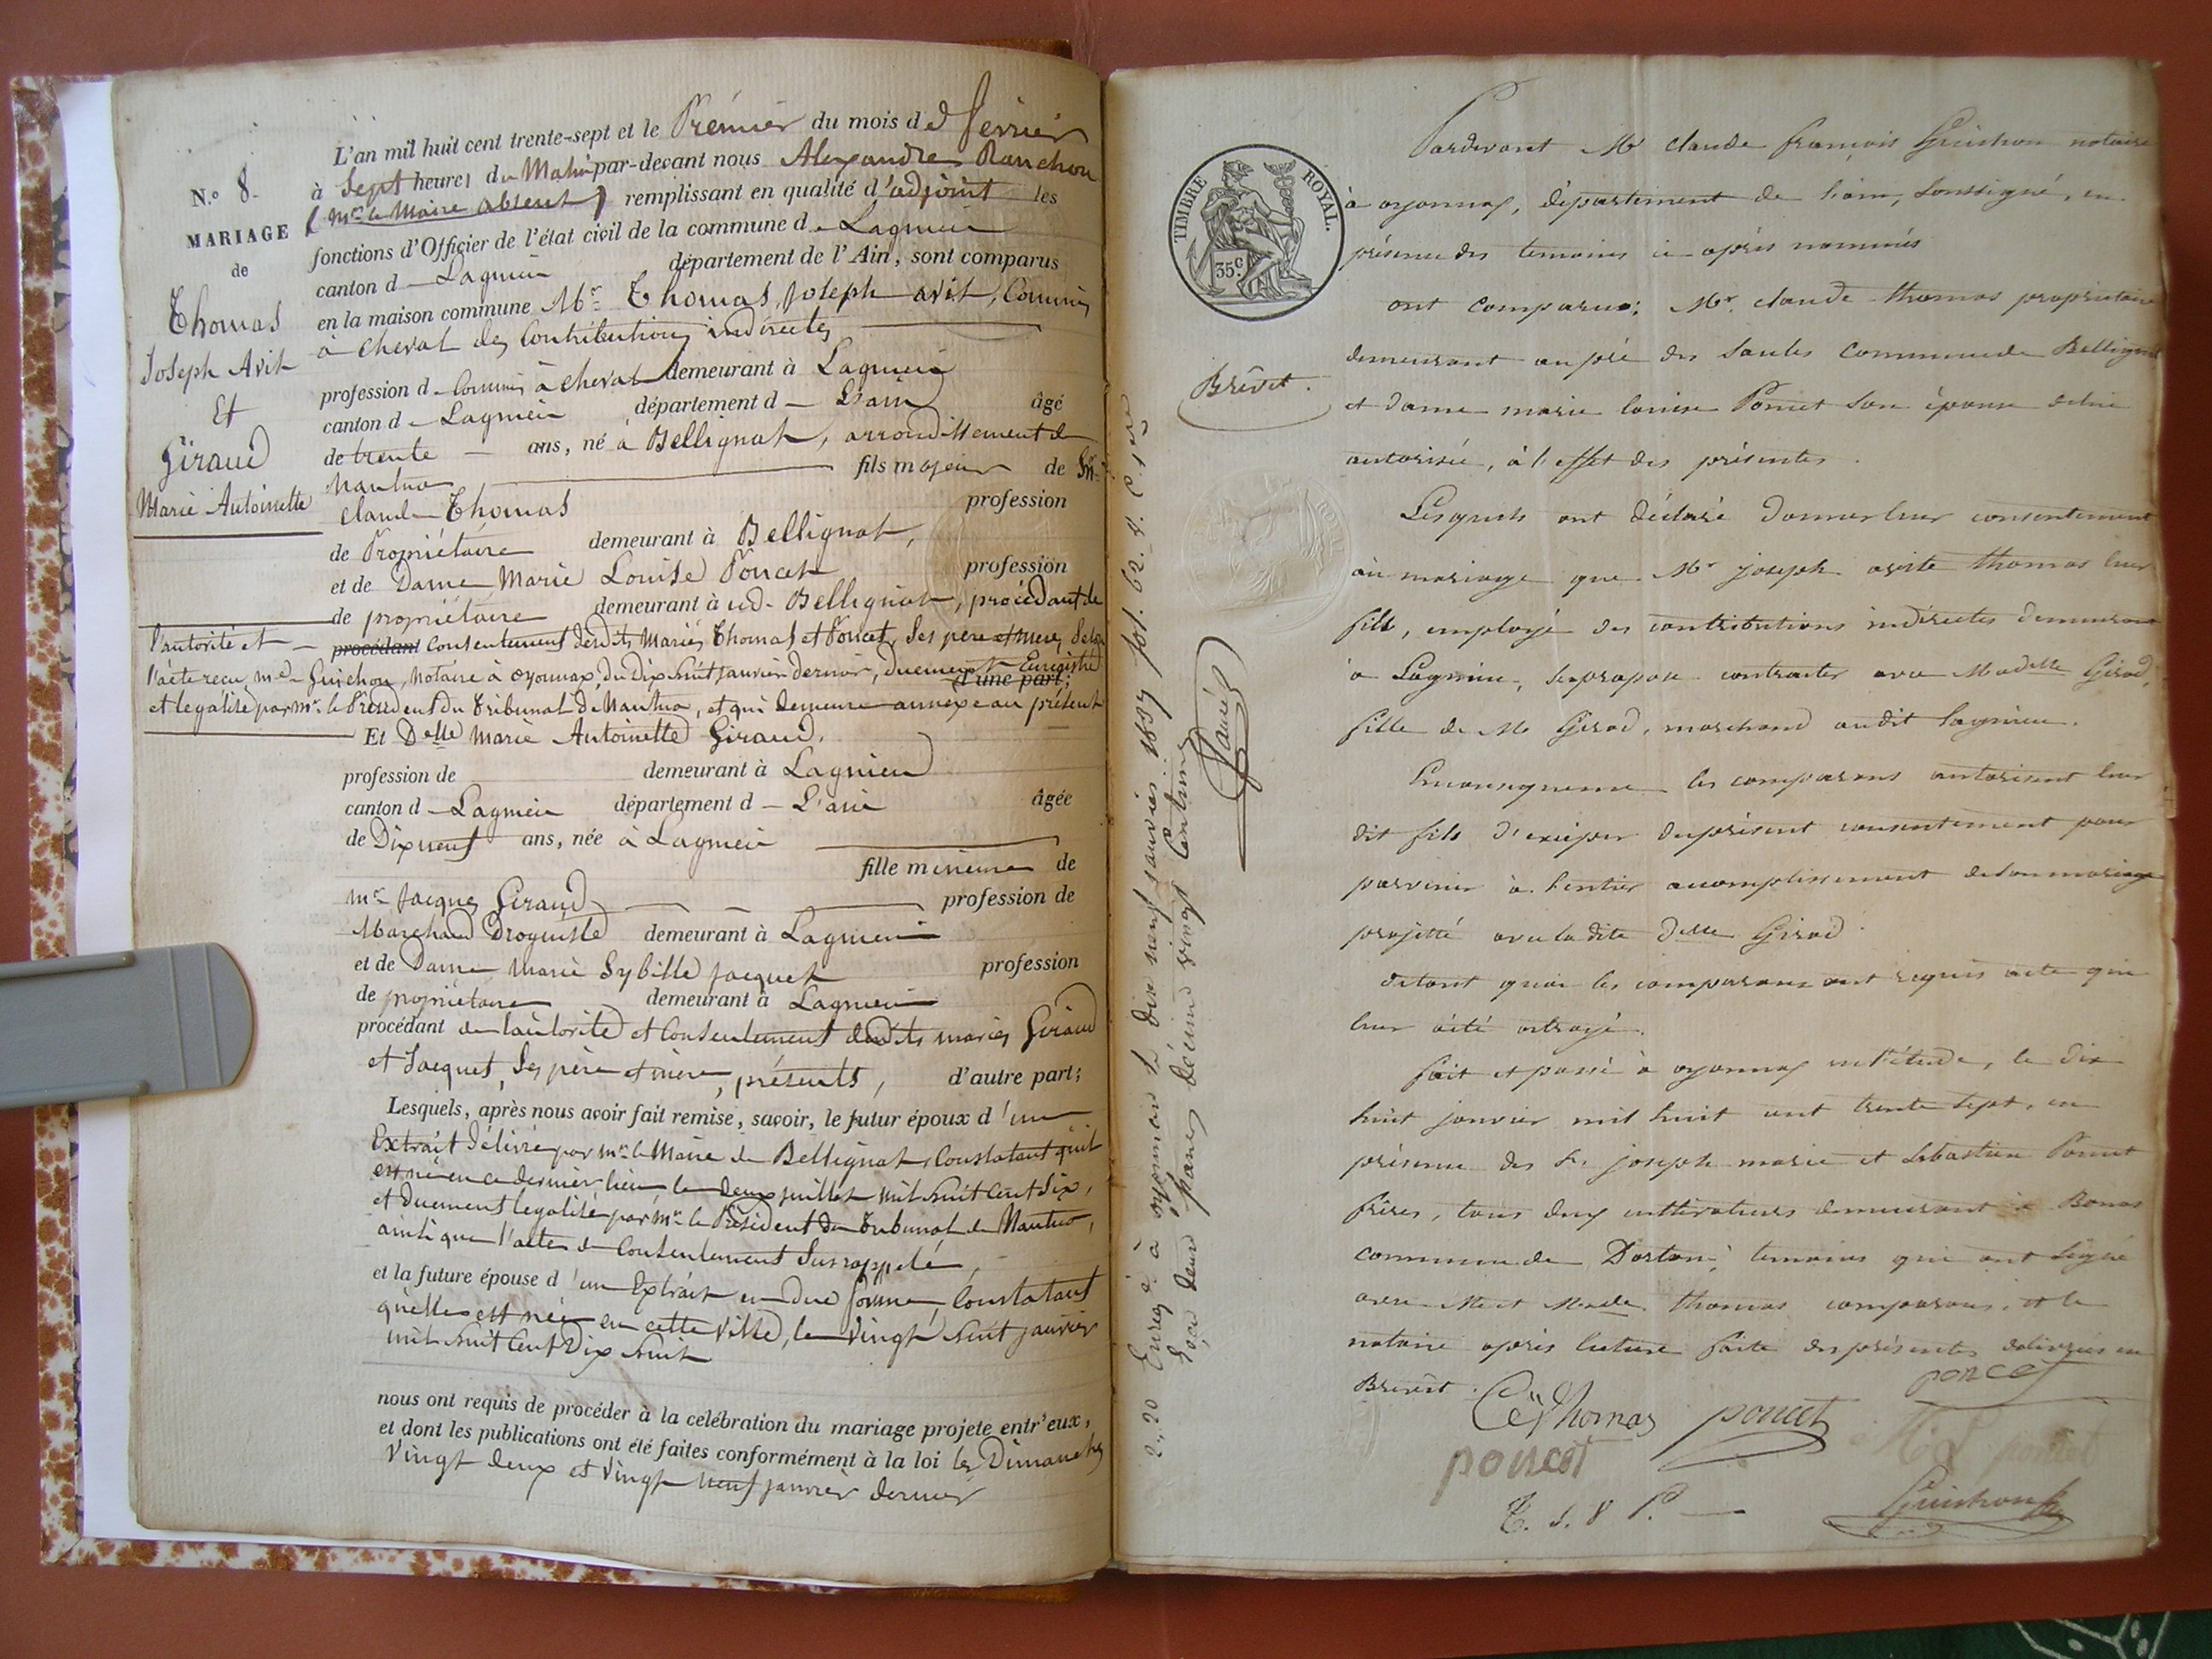 N.º 8.
MARIAGE
de
Thomas
Joseph Avit
Et
Giraud
Marie Antoinette
L'an mil huit cent trente-sept et le Prémier du mois d e fevrier
à Sept heures du Matin par-devant nous Alexandre Ranchon
(mr. le Maire absent) remplissant en qualité d'adjoint les
fonctions d'Officier de l'état civil de la commune de Lagnieu
canton de Lagnieu département de l'Ain, sont comparus
en la maison commune Mr. Thomas, Joseph avit, Commis
à cheval des Contributions indirectes
profession de Commis à cheval demeurant à Lagnieu
canton de Lagnieu département de L'ain âgé
de trente ans, né à Bellignat, arrondissement de
Nantua fils majeur de Mr.
Claude Thomas profession
de Propriétaire demeurant à Bellignat,
et de Dame Marie Louise Poncet profession
de propriétaire demeurant à ud. Bellignat, procédant de
l'autorité et procédant consentement desdits Mariés Thomas et Poncet, ses père et mere, selon
l'acte recu me. Guichon, Notaire à oyonnax, du Dix huit Janvier dernier, duement Enregistré
d'une part;
et légalisé par mr. le Président du Tribunal de Nantua, et qui demeure annexé au présent
Et Delle Marie Antoinette Giraud.
profession de demeurant à Lagnieu
canton de Lagnieu département de L'ain âgée
de Dixneuf ans, née à Lagnieu
fille mineure de
mr. Jacques Giraud profession de
Marchand Droguiste demeurant à Lagnieu
et de Dame Marie Sybille Jacquet profession
de propriétaire demeurant à Lagnieu
procédant de l'autorité et Consentement desdits mariés Giraud
et Jacquet, ses père et mère, présents, d'autre part;
Lesquels, après nous avoir fait remise, savoir, le futur époux d'un
Extrait délivré par mr. le Maire de Bellignat, Constatant qu'il
est né en ce dernier lieu le deux juillet mil huit Cent Six,
et duement légalisé par mr. le Président du Tribunal de Nantua,
ainsi que l'acte de Consentement Susrappelé,
et la future épouse d'un Extrait en due forme, Constatant
qu'elle est née en cette Ville, le Vingt huit janvier
mil huit Cent Dix huit
nous ont requis de procéder à la célébration du mariage projeté entr'eux,
et dont les publications ont été faites conformément à la loi les Dimanches
Vingt deux et Vingt neuf janvier dernier
TIMBRE ROYAL.
35c.
Brevet.
Pardevant Me claude françois Guichon notaire
à oyonnax, département de l'ain, soussigné, en
présence des temoins ci-après nommés
ont comparus; Mr. claude thomas proprietaire
demeurant au pré des Saules commune de Bellignat
et dame marie louise Poncet son épouse de lui
autorisée, à l'effet des présentes.
Lesquels ont déclaré donner leur consentement
au mariage que Mr joseph avite thomas leur
fils, employé des contributions indirectes demeurant
à Lagnieu, se propose contracter avec Madelle Girod,
fille de Mr Girod, marchand audit Lagnieu.
En consequence les comparans autorisent leur
dit fils d'exciper du présent consentement pour
parvenir à l'entier accomplissement de son mariage
projetté avec ladite Delle Girod.
de tout quoi les comparans ont requis acte qui
leur a été octroyé.
fait et passé à oyonnax en l'étude, le dix
huit janvier mil huit cent trente sept, en
présence des Srs joseph marie et sébastien Poncet
frères, tous deux cultivateurs demeurant à Bonas
commune de Dortan, temoins qui ont signé
avec Mr et Made thomas comparans, et le
notaire après lecture faite des présentes délivrées en
Brevet.
poncet
Ce Thomas
poncet
poncet
M L poncet
Guichon
T. S. V. P.
2,,20 Enreg.é à oyonnax le dix neuf janvier 1837 fol. 62. r. C. 1re
Reçu deux francs décime vingt centimes